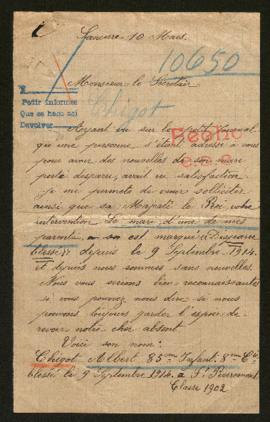 Sancerre 10 Mars
10650
Monsieur le Secrétaire
Pedir informes
Que se haga así
Devolver
Chigot
Ayant vu sur le petit Journal
qu'une personne s'étant adressée à vous
pour avoir des nouvelles de son
porté disparu, avait eu satisfaction
je me permets de vous solliciter
ainsi que sa Majesté le Roi votre
intervention Le mari d'une de mes
parentes est marqué "Disparu
blessé" depuis le 9 Septembre 1914
et depuis nous sommes sans nouvelles.
Nous vous serions bien reconnaissantes
si vous pouvez nous dire si nous
pouvons toujours garder l'espoir de
revoir notre cher absent.
Voici son nom:
Chigot Albert 85me Infant. 8me Cie
blessé le 9 Septembre 1914. à
Classe 1902